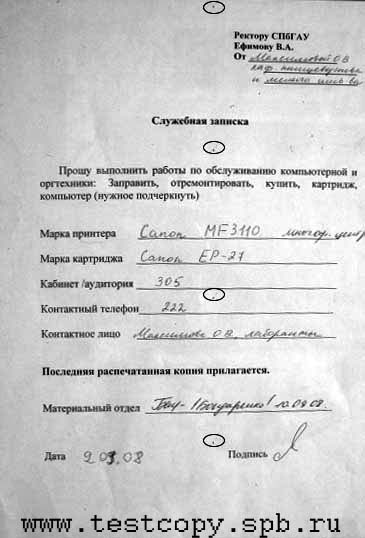 Ректору СПбГАУ
Ефимову В.А.
От Максимовой ОВ
каф.
и
Служебная записка
Прошу выполнить работы по обслуживанию компьютерной и
оргтехники: Заправить, отремонтировать, купить, картридж,
компьютер (нужное подчеркнуть)
Марка принтера Canon MF3110 многоф. центр
Марка картриджа Canon EP-27
Кабинет /аудитория 305
Контактный телефон 222
Контактное лицо Максимова ОВ, лаборант
Последняя распечатанная копия прилагается.
Материальный отдел /Бондаренко/ 10.09.08.
Дата 9.09.08 Подпись
www.testcopy.spb.ru